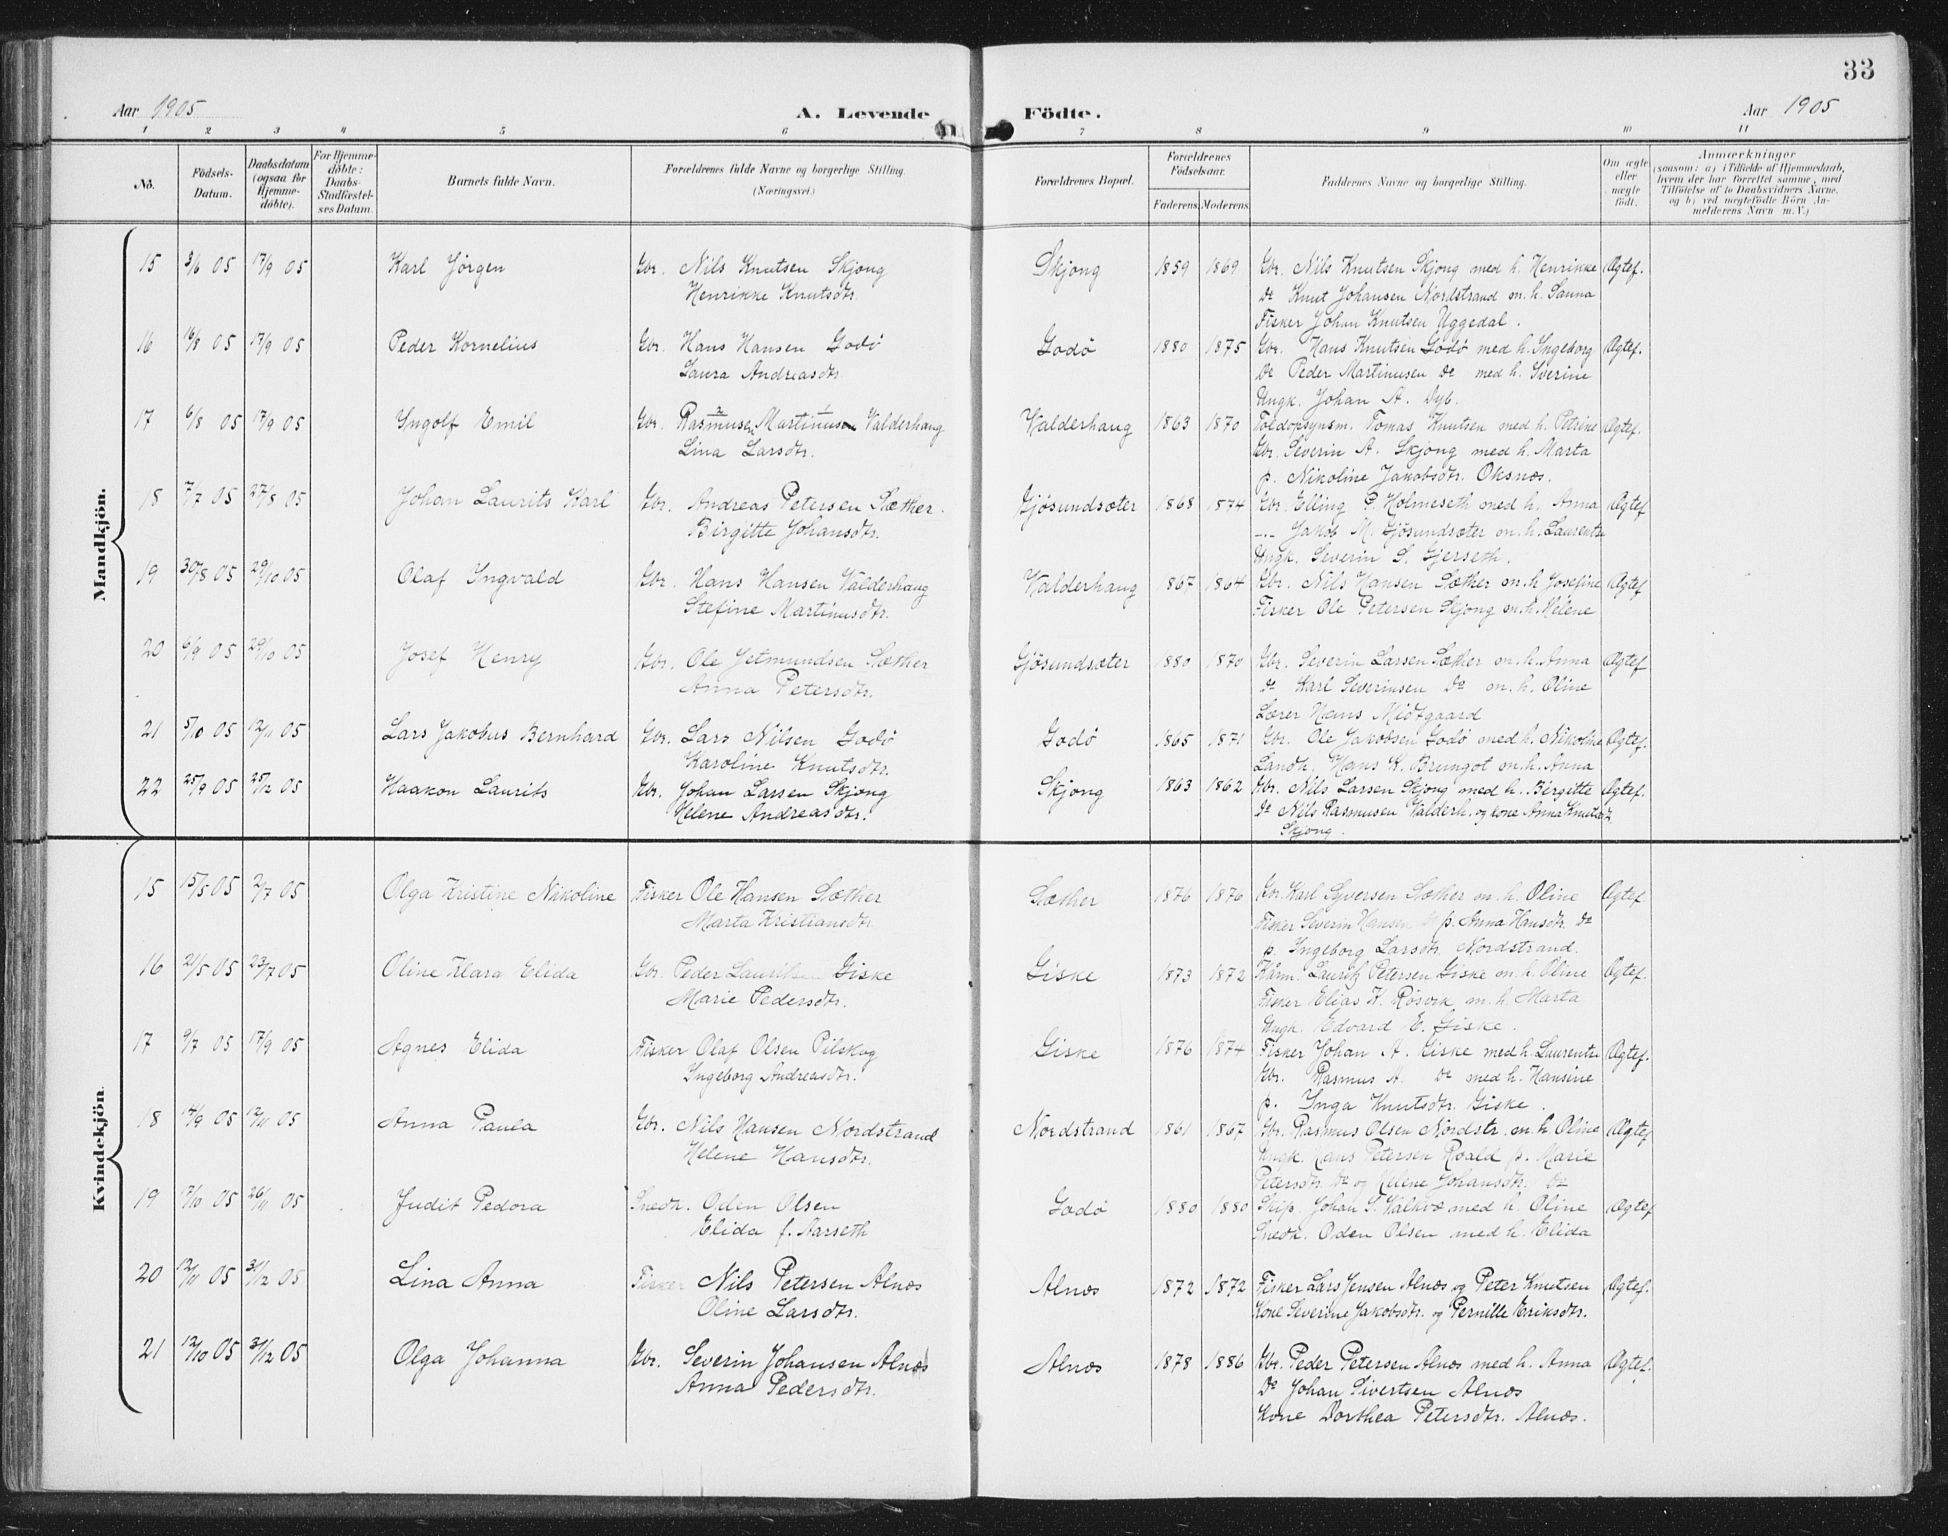 33
Aar 1905 A. Levende Födte. Aar 1905
1 2 3 4 5 6 7 8 9 10 11
No. Födsels-Datum. Daabsdatum (ogsaa for Hjemme-döbte). For Hjemme-döbte: Daabs-Stadfæstel-ses Datum. Barnets fulde Navn. Forældrenes fulde Navne og borgerlige Stilling. (Næringsvei.) Forældrenes Bopæl. Forældrenes Födselsaar. Faderens. Moderens. Faddernes Navne og borgerlige Stilling. Om ægte eller uægte födt. Anmærkninger (saasom: a) i Tilfælde af Hjemmedaab, hvem der har forrettet samme, med Tilföielse af to Daabsvidners Navne, og b) ved uægtefödte Börn Anmelderens Navn m. V.)
Mandkjön.
15 3/6 05 17/9 05 Karl Jörgen Gbr. Nils Knutsen Skjong Skjong 1859 1869 Gbr. Nils Knutsen Skjong med h. Henrikke Ægtef.
Henrikke Knutsdtr. Do Knut Johansen Nordstrand m. h. Sanna
Fisker Johan Knutsen Uggedal.
16 16/8 05 17/9 05 Peder Kornelius Gbr. Hans Hansen Godö Godö 1880 1875 Gbr. Hans Knutsen Godö med h. Ingeborg Ægtef.
Laura Andreasdtr. Do Peder Martinusen do med h. Sverine
Ungk. Johan A. Dyb.
17 6/8 05 17/9 05 Ingolf Emil Gbr. Rasmusen Martinusen Valderhaug Valderhaug 1863 1870 Toldopsynsm. Tomas Knutsen med h. Petrine Ægtef.
Lina Larsdtr. Gbr. Severin A. Skjong med h. Marta
p. Nikoline Jakobsdtr. Oksnæs.
18 7/7 05 27/8 05 Johan Laurits Karl Gbr. Andreas Petersen Sæther. Gjösundsæter 1868 1874 Gbr. Elling P. Holmeseth med h. Anna Ægtef
Birgitte Johansdtr. -.- Jakob M. Gjösundsæter m. h. Laurentse
Ungk. Severin S. Gjerseth.
19 30/8 05 29/10 05 Olaf Ingvald Gbr. Hans Hansen Valderhaug Valderhaug 1867 1864 Gbr. Nils Hansen Sæther m. h. Josefine Ægtef
Stefine Martinusdtr. Fisker Ole Petersen Skjong m. h. Helene
20 6/9 05 29/10 05 Josef Henry Gbr. Ole Jetmundsen Sæther Gjösundsæter 1880 1870 Gbr. Severin Larsen Sæther m. h. Anna Ægtef
Anna Petersdtr. do Karl Severinsen Do m. h. Oline
Lærer Hans Midtgaard
21 5/10 05 12/11 05 Lars Jakobus Bernhard Gbr. Lars Nilsen Godö Godö 1865 1871 Gbr. Ole Jakobsen Godö med h. Nikoline Ægtef.
Karoline Knutsdtr. Landh. Hans K. Brungot m. h. Anna
22 25/9 05 25/12 05 Haakon Laurits Gbr. Johan Larsen Skjong Skjong 1863 1862 Gbr. Nils Larsen Skjong med h. Birgitte Ægtef.
Helene Andreasdtr. Do Nils Rasmusen Valderh. og kone Anna Knutsd.
Skjong.
Kvindekjön
15 15/5 05 2/7 05 Olga Kristine Nikoline Fisker Ole Hansen Sæther Sæther 1876 1876 Gbr. Karl Syversen Sæther m. h. Oline Ægtef
Marta Kristiansdtr. Fisker Severin Hansen p. Anna Hansdtr. do
p. Ingeborg Larsdtr. Nordstrand.
16 21/5 05 23/7 05 Oline Klara Elida Gbr. Peder Lauritsen Giske Giske 1873 1872 Kårm. Laurits Petersen Giske m. h. Oline Ægtef.
Marie Pedersdtr. Fisker Elias K. Røsvik m. h. Marta
Ungk. Edvard E. Giske.
17 9/7 05 17/9 05 Agnes Elida Fisker Olaf Olsen Pilskog Giske 1876 1874 Fisker Johan A. Giske med h. Laurentse Ægtef.
Ingeborg Andreasdtr. Gbr. Rasmus A. do med h. Hansine
p. Inga Knutsdtr. Giske.
18 14/9 05 12/11 05 Anna Paula Gbr. Nils Hansen Nordstrand Nordstrand 1861 1867 Gbr. Rasmus Olsen Nordstr. m. h. Oline Ægtef
Helene Hansdtr. Ungk. Hans Petersen Roald p. Marie
Petersdtr. do og Helene Johansdtr. do
19 7/10 05 26/11 05 Judit Pedora Snedk. Oden Olsen Godö 1880 1880 Skip. Johan S. Valkvæ med h. Oline Ægtef
Elida f. Aarseth Snedk. Oden Olsen med h. Elida
20 12/11 05 31/12 05 Lina Anna Fisker Nils Petersen Alnæs Alnæs 1872 1872 Fisker Lars Jensen Alnæs og Peter Knutsen Ægtef.
Oline Larsdtr. Kone Severine Jakobsdtr. og Pernille Eriksdtr.
21 12/10 05 31/12 05 Olga Johanna Gbr. Severin Johansen Alnæs Alnæs 1878 1886 Gbr. Peder Petersen Alnæs med h. Anna Ægtef.
Anna Pedersdtr. Do Johan Sivertsen Alnæs
Kone Dorthea Petersdtr. Alnæs.